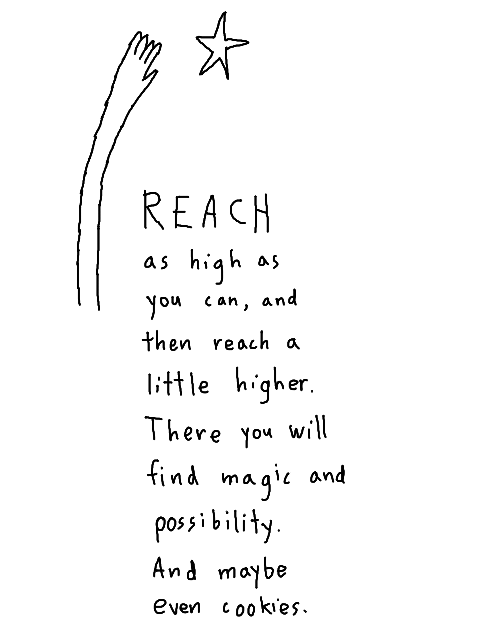 REACH
as high as
you can, and
then reach a
little higher.
There you will
find magic and
possibility.
And maybe
even cookies.